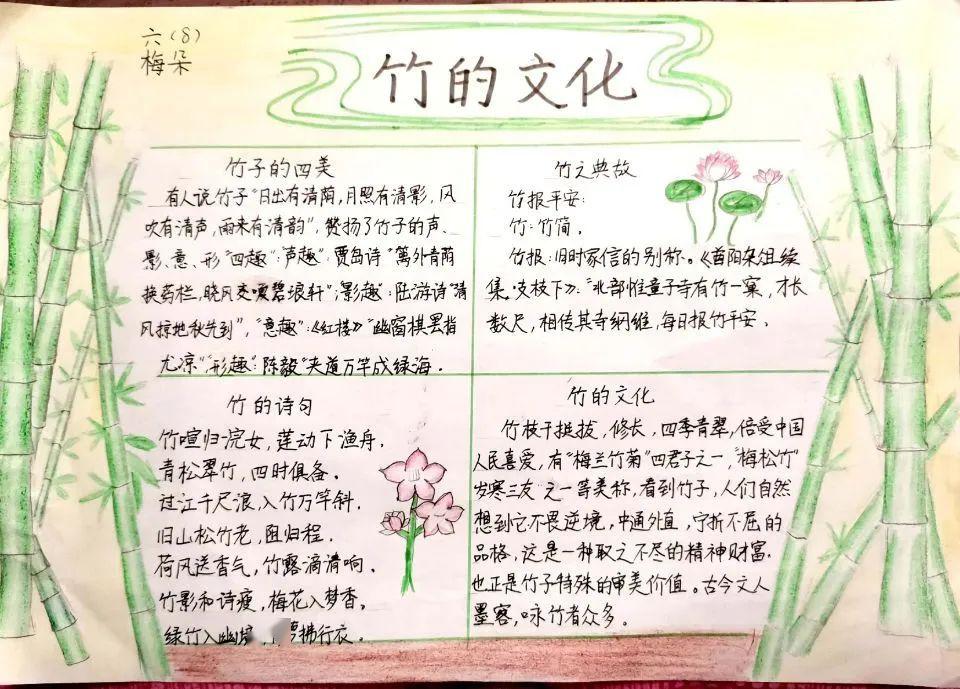 六(8)
梅朵
竹的文化
竹子的四美
有人说竹子“日出有清荫,月照有清影,风
吹有清声,雨来有清韵”,赞扬了竹子的声、
影、意、形“四趣”:“声趣”:贾岛诗“篱外青荫
换药栏,晓风交嗳碧琅玕”;“影趣”:陆游诗“清
风掠地秋先到”,“意趣”:《红楼》“幽窗棋罢指
尤凉”“形趣”:陈毅“夹道万竿成绿海.
竹之典故
竹报平安:
竹:竹简.
竹报:旧时家信的别称。《酉阳杂俎续
集.支枝下》:“北部惟童子寺有竹一窠,才长
数尺,相传其寺纲维,每日报竹平安.
竹的诗句
竹喧归浣女,莲动下渔舟.
青松翠竹,四时俱备.
过江千尺浪,入竹万竿斜.
旧山松竹老,阻归程.
荷风送香气,竹露滴清响.
竹影和诗瘦,梅花入梦香。
绿竹入幽 拂行衣.
竹的文化
竹枝干挺拔,修长,四季青翠,倍受中国
人民喜爱,有“梅兰竹菊”四君子之一,“梅松竹”
岁寒三友之一等美称,看到竹子,人们自然
想到它不畏逆境,中通外直,宁折不屈的
品格,这是一种取之不尽的精神财富.
也正是竹子特殊的审美价值。古今文人
墨客,咏竹者众多。